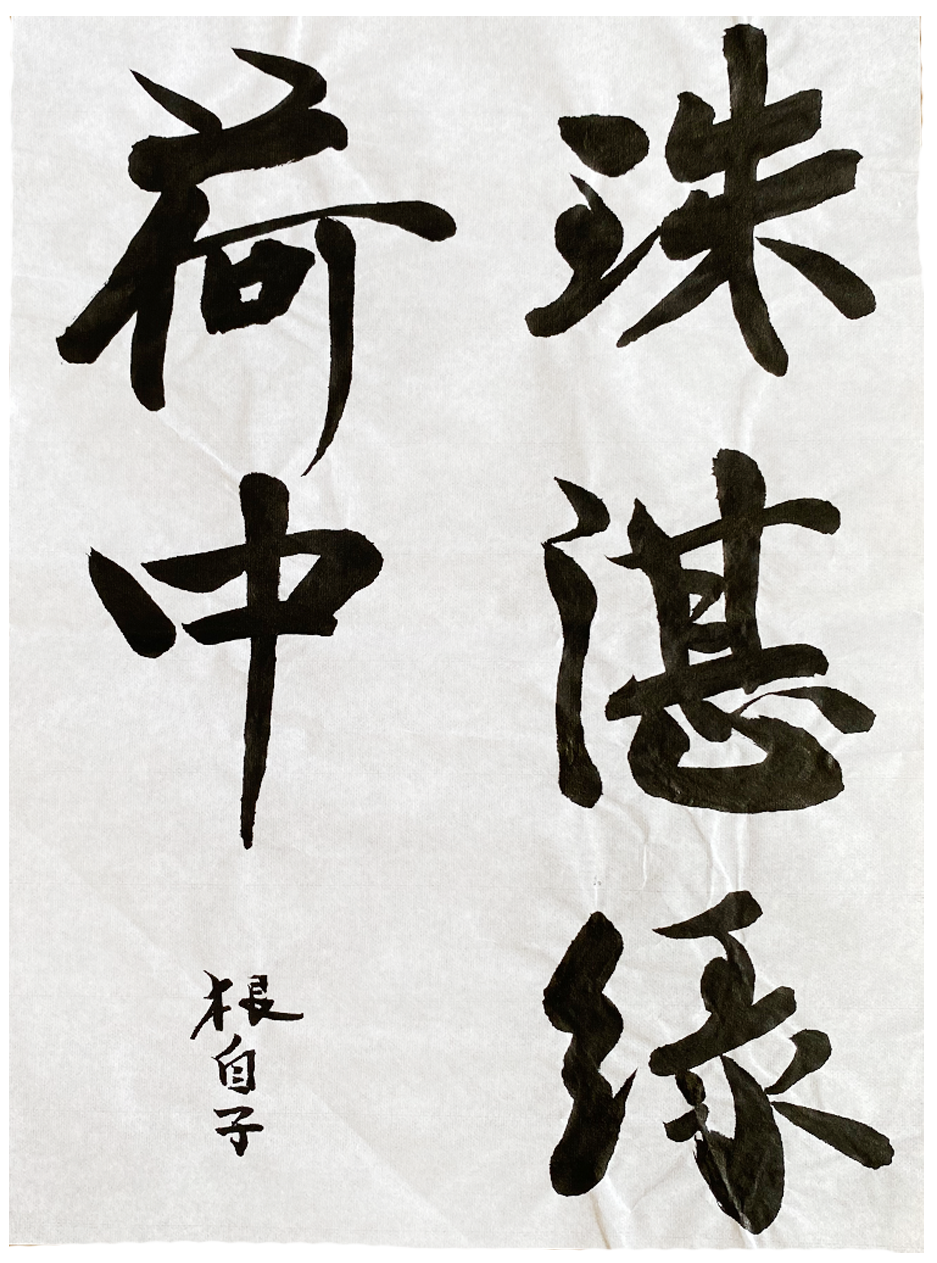 珠湛緑
荷中
根自子